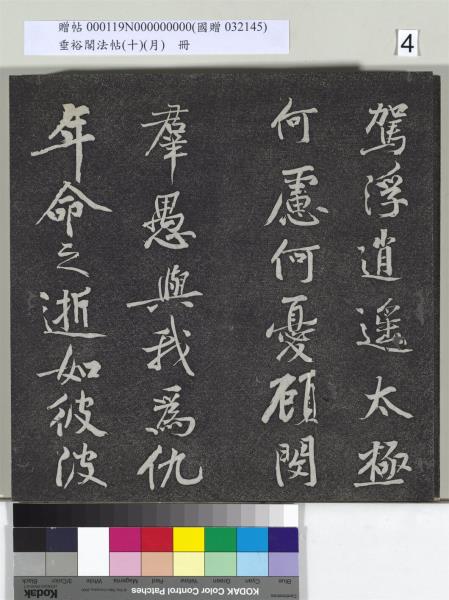 贈帖 000119N000000000(國贈 032145)
垂裕閣法帖(十)(月) 冊
4
駕浮逍遥太極
何慮何憂顧閔
羣愚與我為仇
年命之逝如彼波
Blue Cyan Green Yellow Red Magenta White 3/Color Black
Kodak
KODAK Color Control Patches